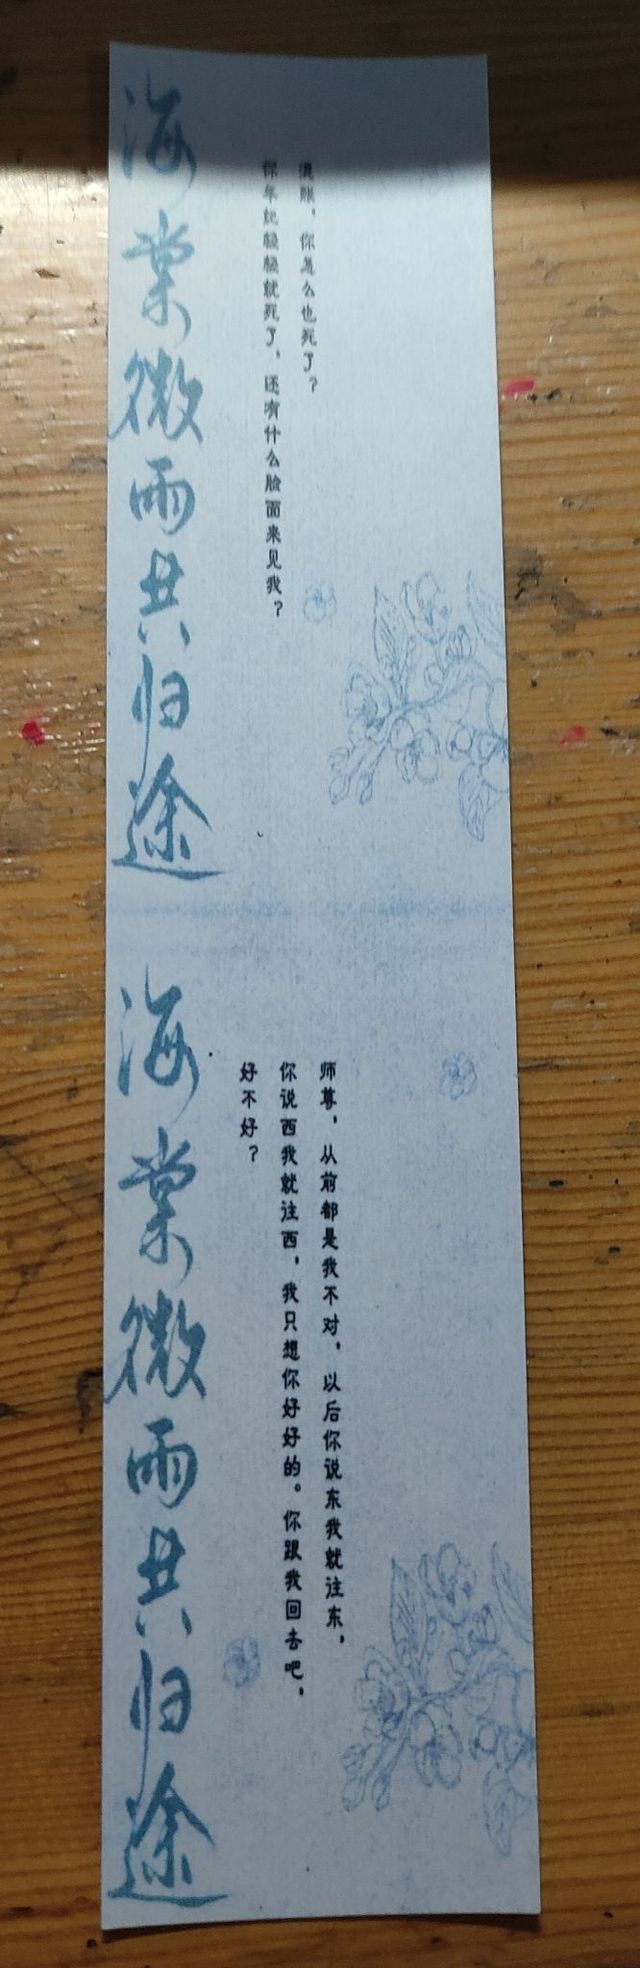 混账，你怎么也死了？
你年纪轻轻就死了，还有什么脸面来见我？
海棠微雨共归途
师尊，从前都是我不对，以后你说东我就往东，
你说西我就往西，我只想你好好的。你跟我回去吧，
好不好？
海棠微雨共归途